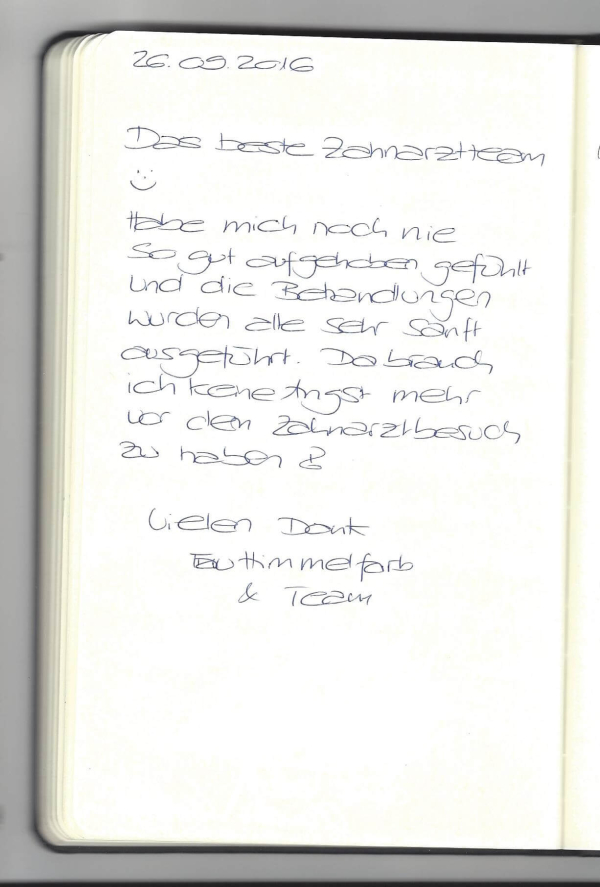 26.09.2016
Das beste Zahnarztteam
Habe mich noch nie
so gut aufgehoben gefühlt
und die Behandlungen
wurden alle sehr sanft
ausgeführt. Da brauch
ich keine Angst mehr
vor dem Zahnarztbesuch
zu haben
Vielen Dank
Himmelfarb
& Team